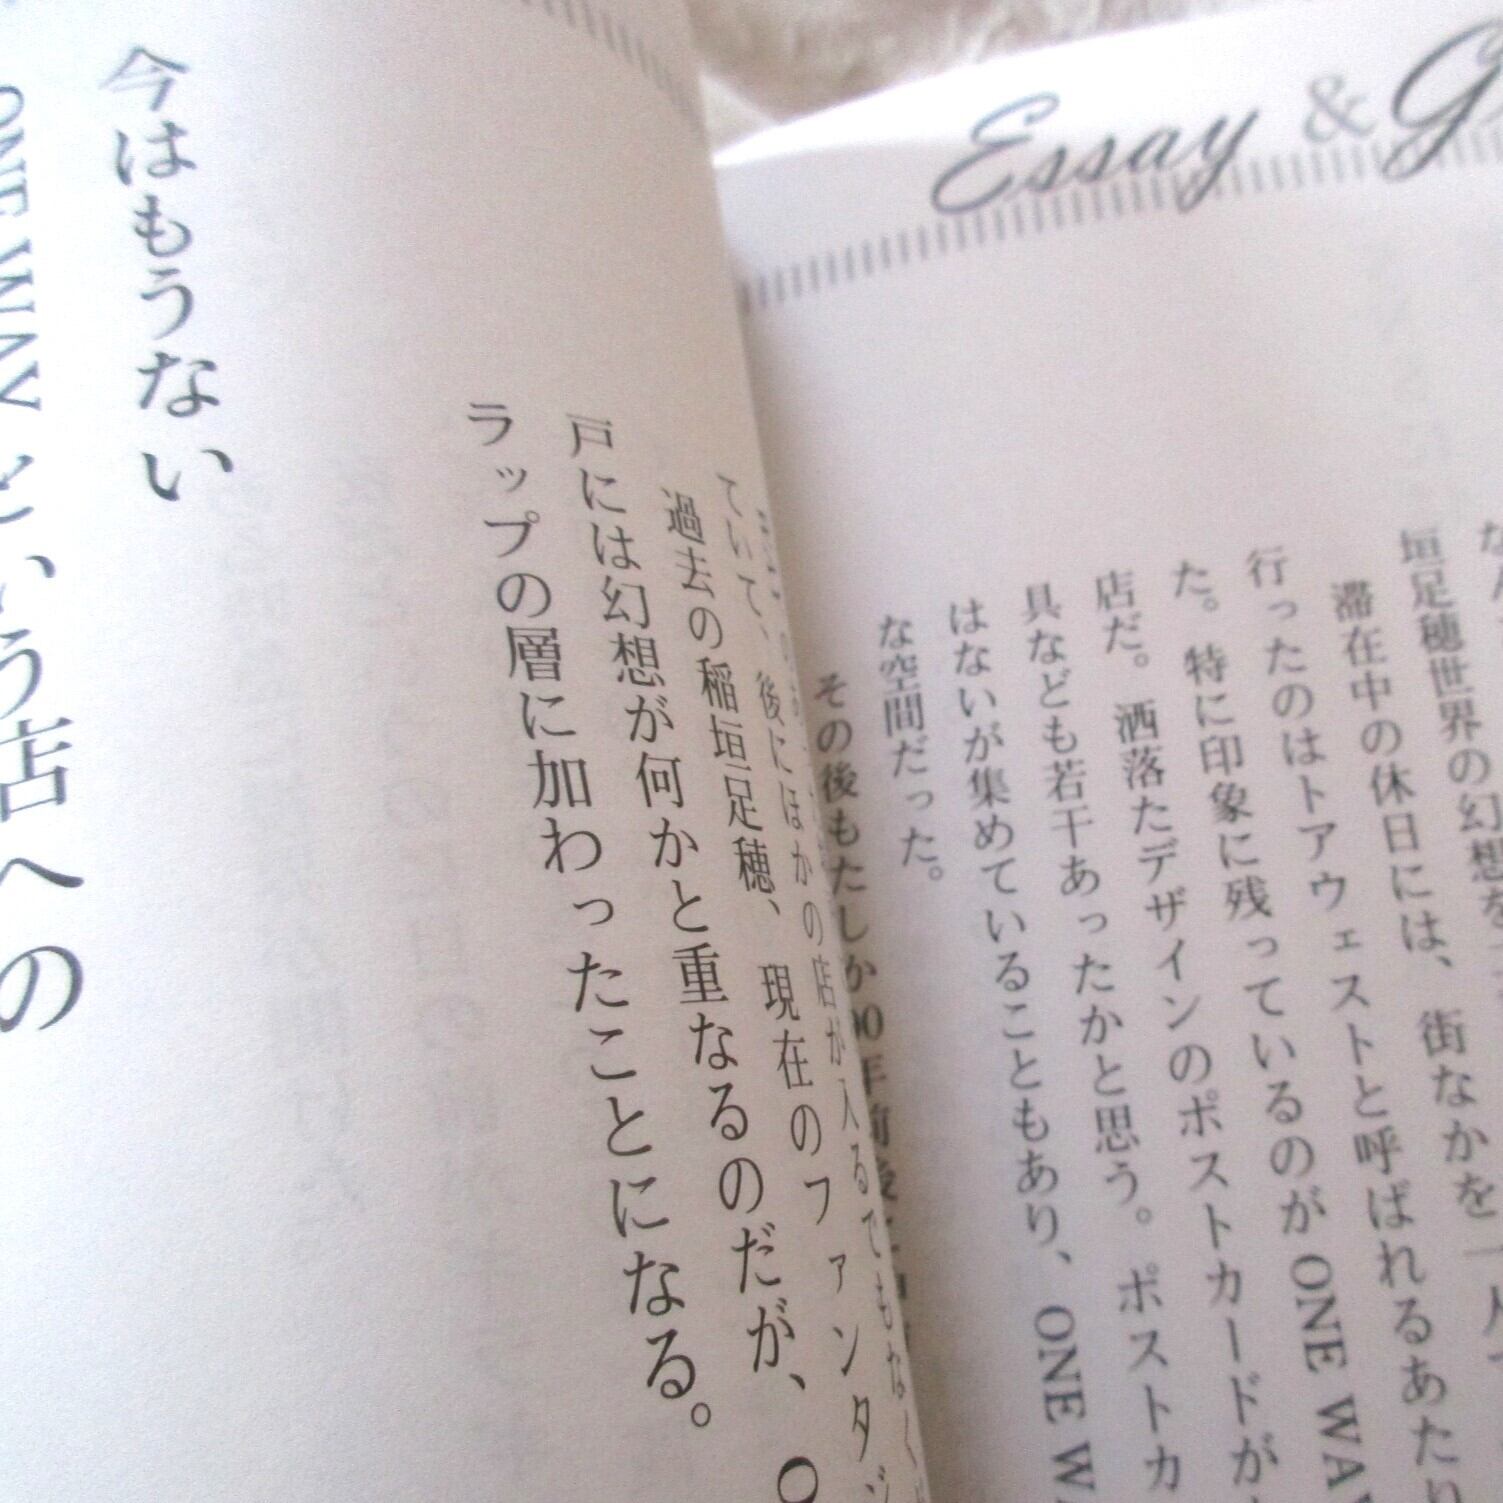 Essay & G
垣足穂世界の幻想を
滞在中の休日には、街なかを一人で
行ったのはトアウェストと呼ばれるあたり
た。特に印象に残っているのが ONE WAY
店だ。洒落たデザインのポストカードが
具なども若干あったかと思う。ポストカ
はないが集めていることもあり、ONE W
な空間だった。
その後もたしか
ていて、後にほかの店が入るでもなく
過去の稲垣足穂、現在のファンタジ
戸には幻想が何かと重なるのだが、
ラップの層に加わったことになる。
今はもうない
ONE WAY という店への